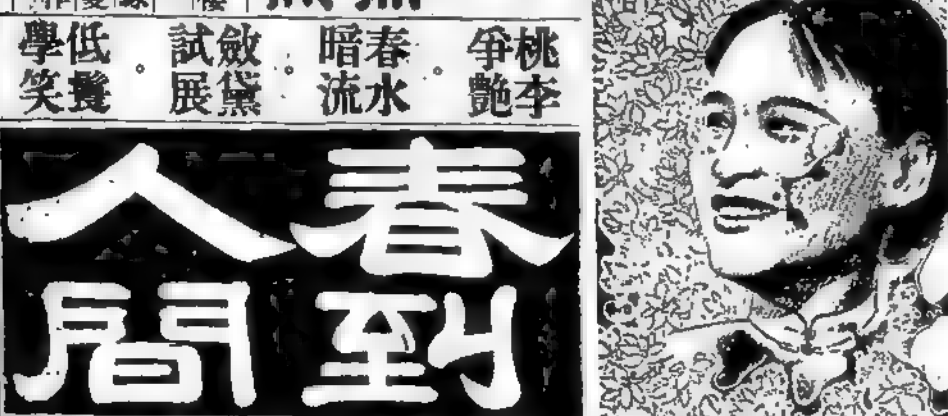 桃李
爭艷
春水
暗流
斂黛
試展
低鬟
學笑
春到
人間